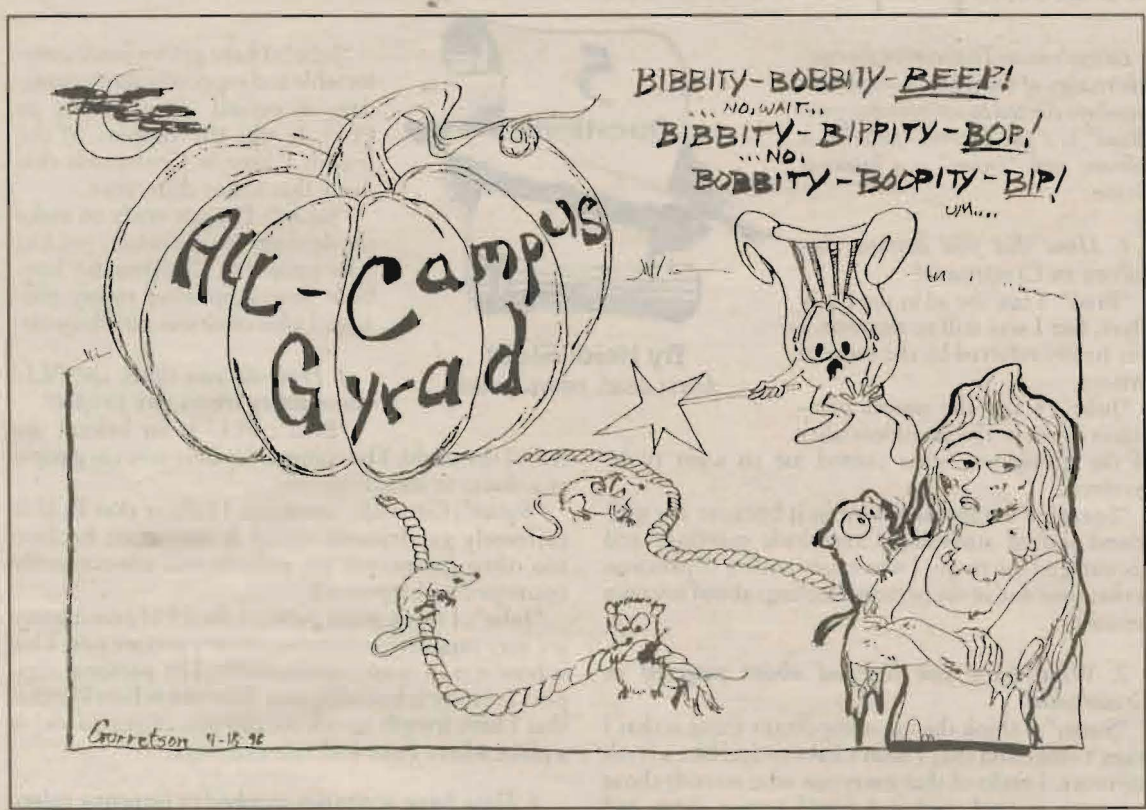 BIBBITY-BOBBITY-BEEP!
...NO, WAIT...
BIBBITY-BIPPITY-BOP!
...NO.
BOBBITY-BOOPITY-BIP!
UM....
ALL-Campus
Gyrad
Garretson